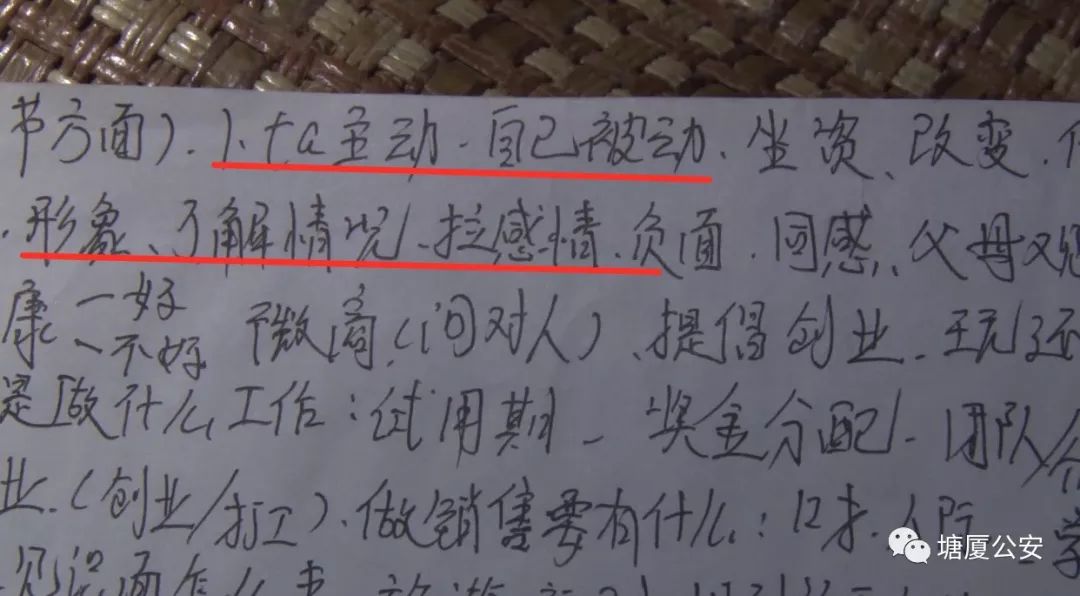 节方面)、1、ta主动、自己被动、坐资、改变、
、形象、了解情况、拉感情、负面、同感、父母观
康 一好
一不好 微商、(问对人)、提倡创业、玩还
是做什么工作:试用期、奖金分配、团队/
业、(创业/打工)、做销售要有什么:口才、人际、学
塘厦公安